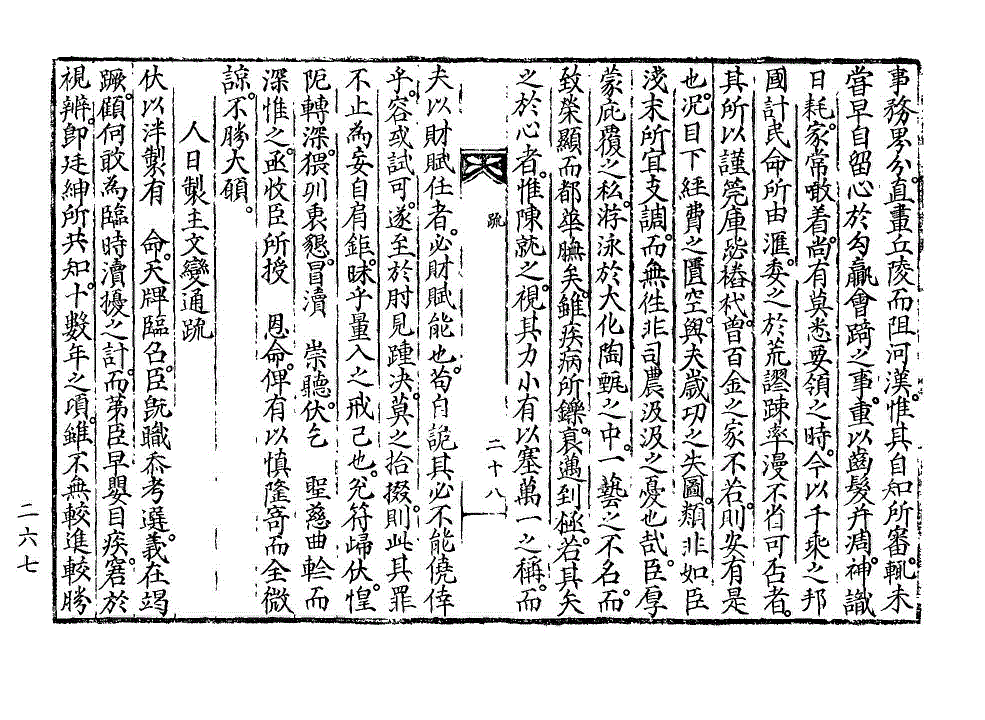 事務界分。直畫丘陵而阻河漢。惟其自知所審。輒未
嘗早自留心於勾贏會踦之事。重以齒髮幷凋。神識
日耗。家常噉着。尚有莫悉要領之時。今以千乘之邦
國計民命所由滙。委之於荒謬疎率漫不省可否者。
其所以謹筦庫毖樁杙。曾百金之家不若。則安有是
也。况目下經費之匱空。與夫歲功之失圖。類非如臣
淺末所宜支調。而無徃非司農汲汲之憂也哉。臣厚
蒙庇覆之私。游泳於大化陶甄之中。一藝之不名。而
致榮顯而都華膴矣。雖疾病所鑠。衰邁到極。若其矢
之於心者。惟陳就之視。其力小有以塞萬一之稱。而
疏
二十八
夫以財賦仕者。必財賦能也。苟自詭其必不能僥倖
乎。容或試可。遂至於肘見踵决。莫之拾掇。則此其罪
不止爲妄自肩鉅。昧乎量入之戒己也。兊符歸伏。惶
阨轉深。猥列衷懇。冒瀆 崇聽。伏乞 聖慈曲軫而
深惟之。亟收臣所授 恩命。俾有以愼隆寄而全微
諒。不勝大願。
人日製主文變通疏
伏以泮製有 命。天牌臨召。臣旣職忝考選。義在竭
蹶。顧何敢爲臨時瀆擾之計。而第臣早嬰目疾。窘於
視辨。卽廷紳所共知。十數年之頃。雖不無較進較勝
二六七